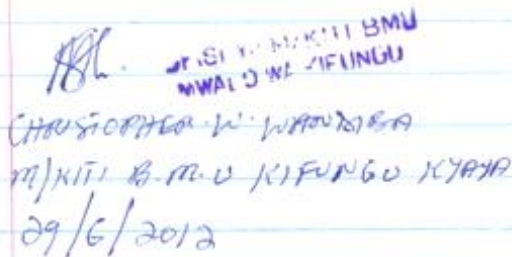 M/KITI BMU
MWALO WA KIFUNGU
CHRISTOPHER W.
M/KITI B.M.U KIFUNGU KYAYA
29/6/2012